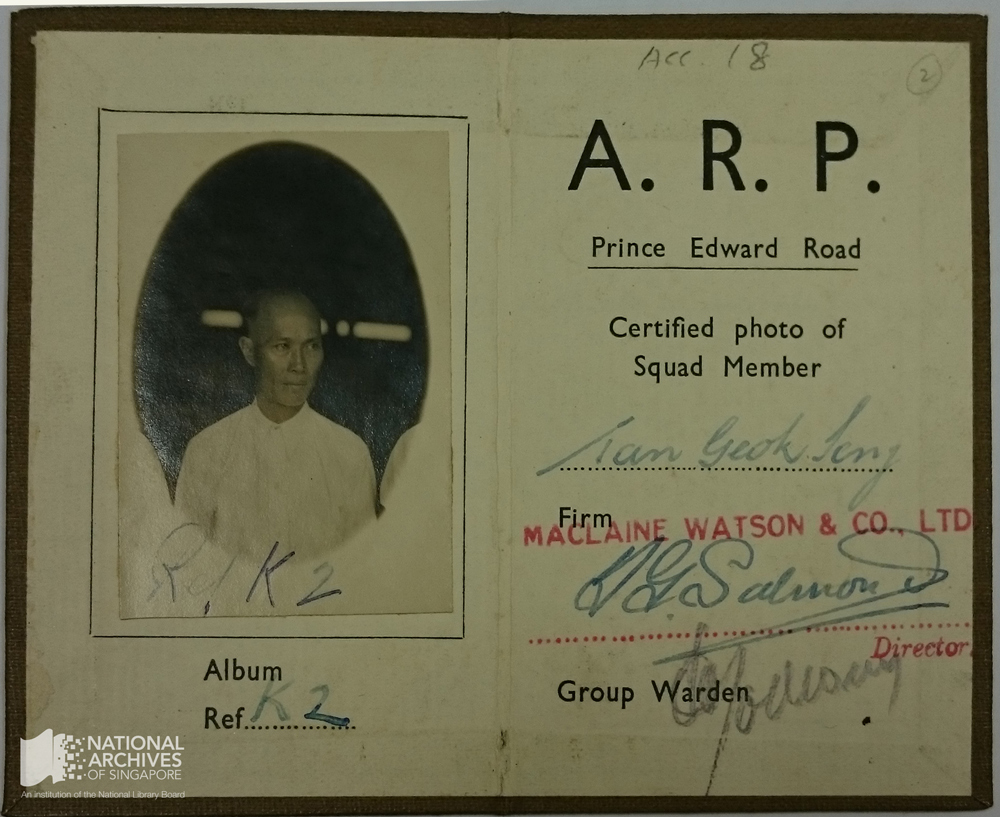 Acc. 18
2
Ref. K 2
Album
Ref. K 2
A. R. P.
Prince Edward Road
Certified photo of
Squad Member
Tan Geok Seng
Firm
MACLAINE WATSON & CO., LTD
Salmond
Director.
Group Warden
NATIONAL
ARCHIVES
OF SINGAPORE
An institution of the National Library Board